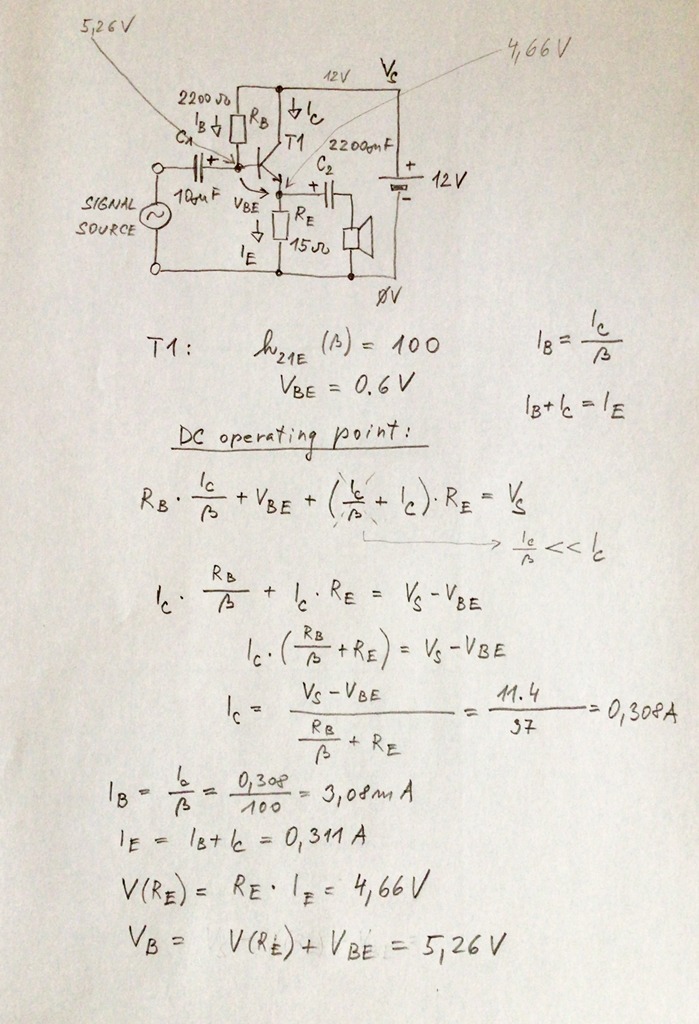 5,26V
4,66V
12V
V_S
2200Ω
I_B
R_B
I_C
C1
T1
2200µF
+
+
C2
+
12V
10µF
V_BE
R_E
-
SIGNAL
SOURCE
15Ω
I_E
ØV
T1: h_21E (β) = 100
V_BE = 0.6V
I_B = I_C / β
I_B + I_C = I_E
DC operating point:
R_B · I_C/β + V_BE + (I_C/β + I_C) · R_E = V_S
I_C/β << I_C
I_C · R_B/β + I_C · R_E = V_S - V_BE
I_C · (R_B/β + R_E) = V_S - V_BE
I_C = (V_S - V_BE) / (R_B/β + R_E) = 11.4 / 37 = 0,308A
I_B = I_C/β = 0,308/100 = 3,08mA
I_E = I_B + I_C = 0,311A
V(R_E) = R_E · I_E = 4,66V
V_B = V(R_E) + V_BE = 5,26V